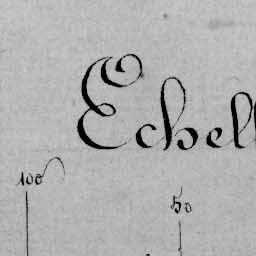 Echell
100
50